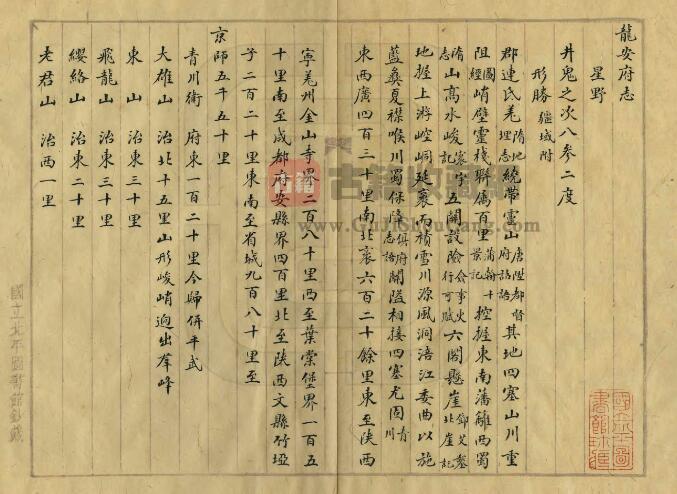 龍安府志
星野
井鬼之次入參二度
形勝 疆域附
郡連氐羌隋地理志繞帶靈山唐陞都督府誥語其地四塞山川重
阻圖經峭壁靈棧聯屬百里蒲翰十景記控握東南藩籬西蜀
隋志山高水峻寰宇記五關設險余事火行可賦六閣懸崖鄧艾墓北崖記
地握上游崆峒延袤而積雪川源風洞涪江委曲以施
藍彝夏襟喉川蜀保障俱府志語關隘相接四塞尤固青川
東西廣四百三十里南北袤六百二十餘里東至陝西
寧羌州金山寺界二百八十里西至葉棠堡界一百五
十里南至成都府安縣界四百里北至陝西文縣竹埡
子二百二十里東南至省城九百八十里至
京師五千五十里
青川衛 府東一百二十里今歸併平武
大雄山 治北十五里山形峻峭迥出羣峰
東山 治東三十里
飛龍山 治東三十里
纓絡山 治東二十里
老君山 治西一里
古籍收藏網
www.GuJiShouCang.com
國立北平圖書館收藏